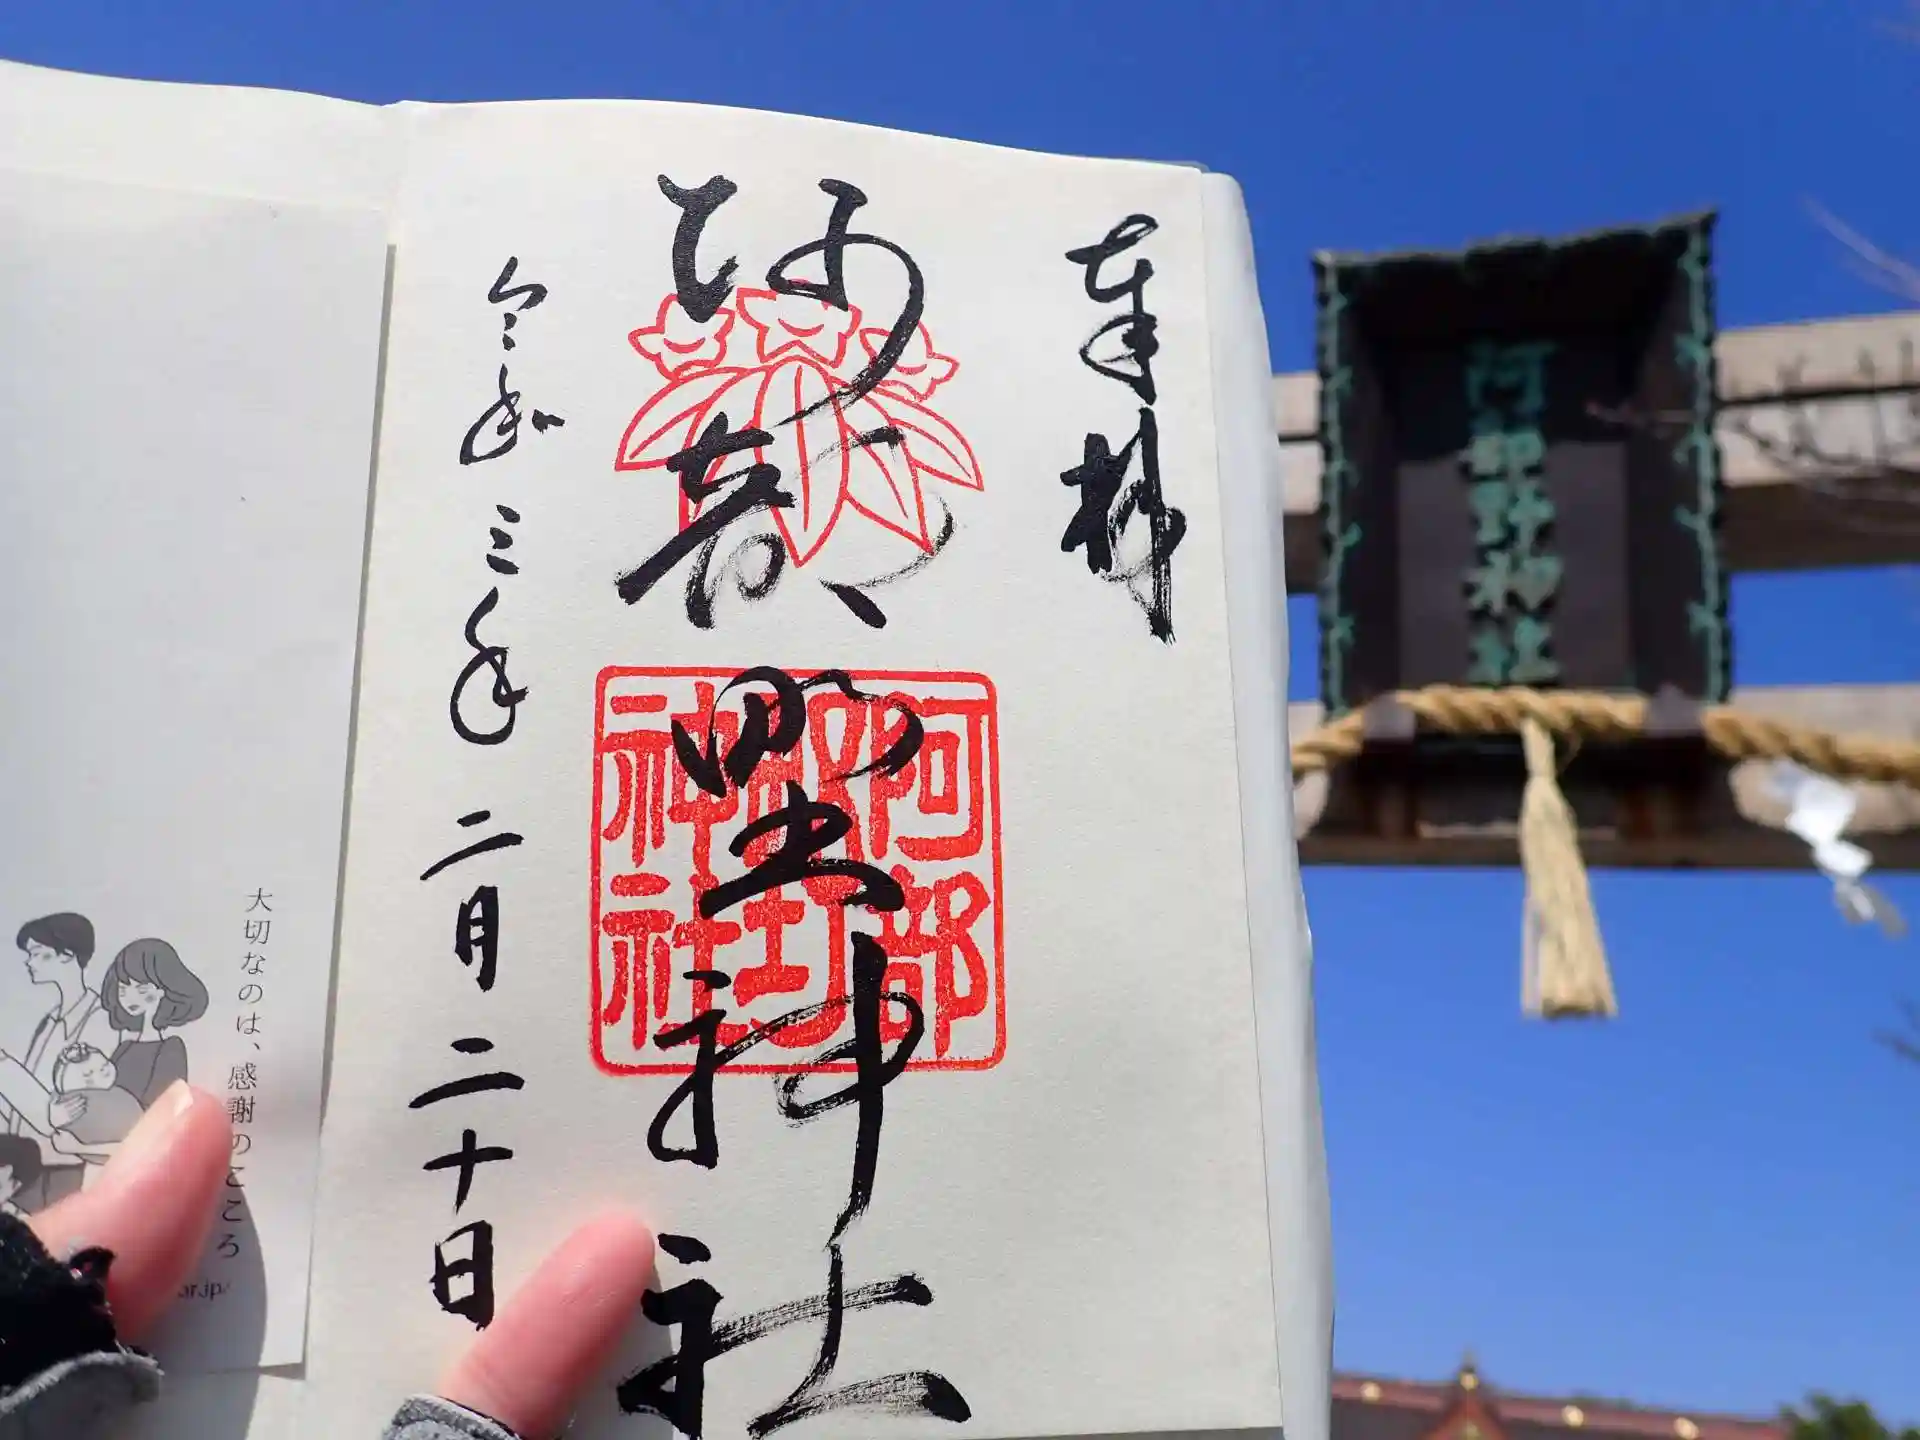 奉拝
阿部野神社
阿部
野
神社
令和三年二月二十日
阿部野神社
大切なのは、感謝のこころ
or.jp/